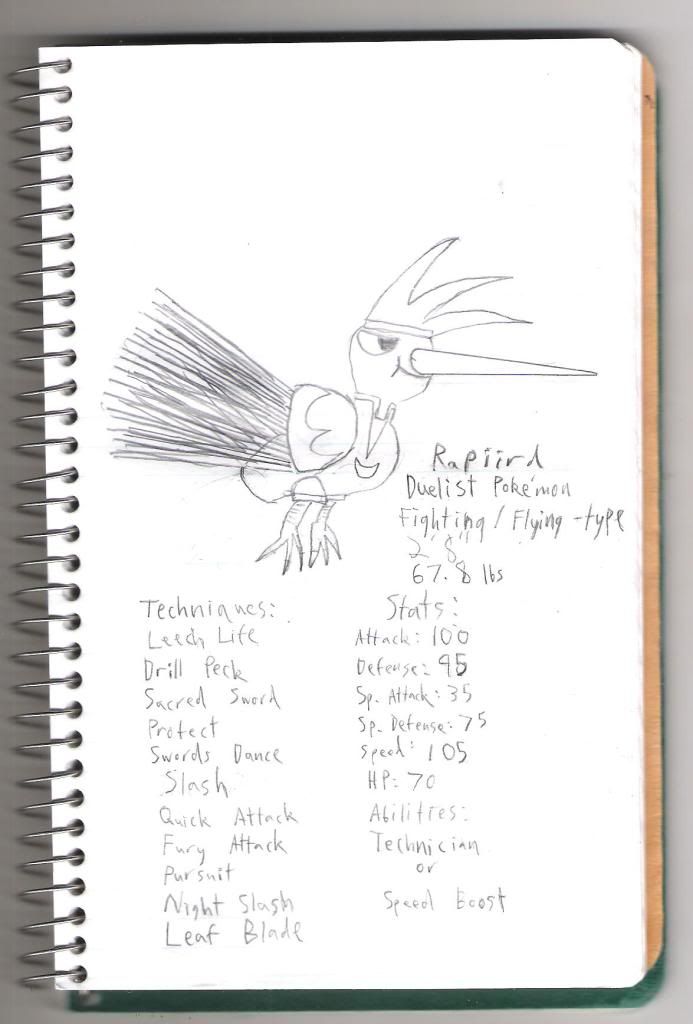 Rapiird
Duelist Pokémon
Fighting / Flying-type
2' 8"
67.8 lbs
Techniques:
Leech Life
Drill Peck
Sacred Sword
Protect
Swords Dance
Slash
Quick Attack
Fury Attack
Pursuit
Night Slash
Leaf Blade
Stats:
Attack: 100
Defense: 95
Sp. Attack: 35
Sp. Defense: 75
Speed: 105
HP: 70
Abilities:
Technician
or
Speed Boost